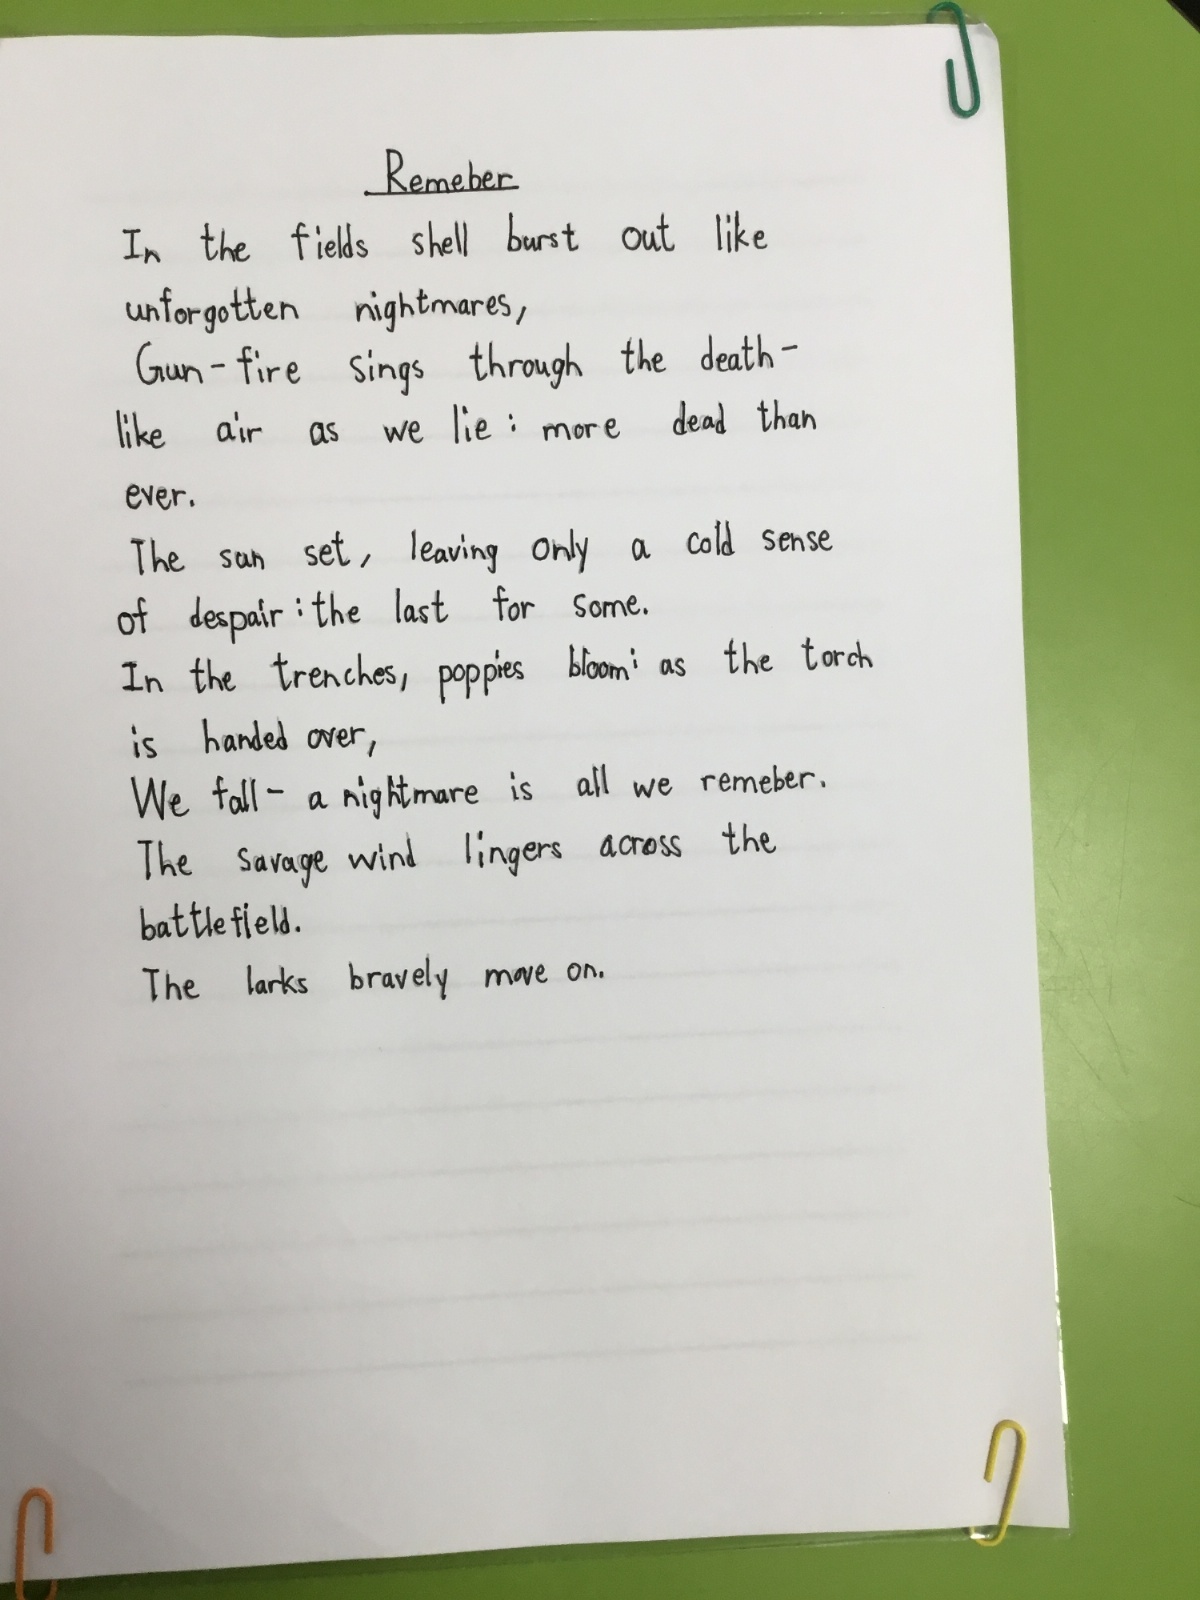 Remeber
In the fields shell burst out like
unforgotten nightmares,
Gun-fire sings through the death-
like air as we lie: more dead than
ever.
The sun set, leaving only a cold sense
of despair: the last for some.
In the trenches, poppies bloom: as the torch
is handed over,
We fall- a nightmare is all we remeber.
The savage wind lingers across the
battlefield.
The larks bravely move on.